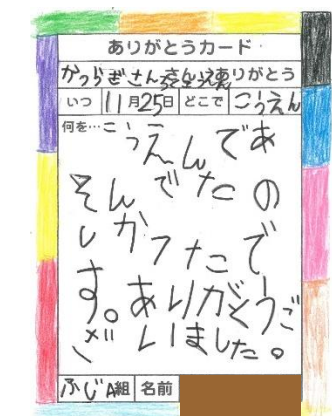 ありがとうカード
かつらぎさん ありがとう
いつ 11月25日 どこで こうえん
何を…こ
うえんであ
そんでたの
しかったで
す。ありがとうご
ざいました。
ふじA組 名前